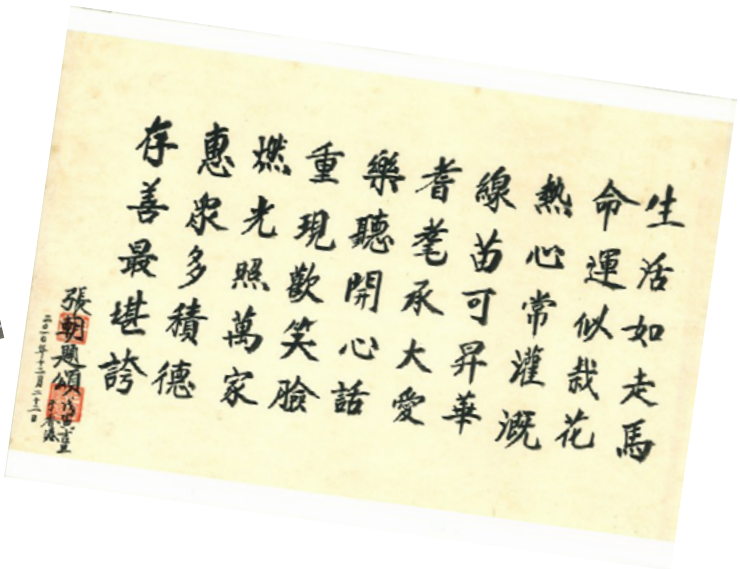 生活如走馬
命運似栽花
熱心常灌溉
線苗可昇華
耆耄承大愛
樂聽開心話
重現歡笑臉
燃光照萬家
惠眾多積德
存善最堪誇
張朝題頌
二〇一〇年十二月二十二日
於香港